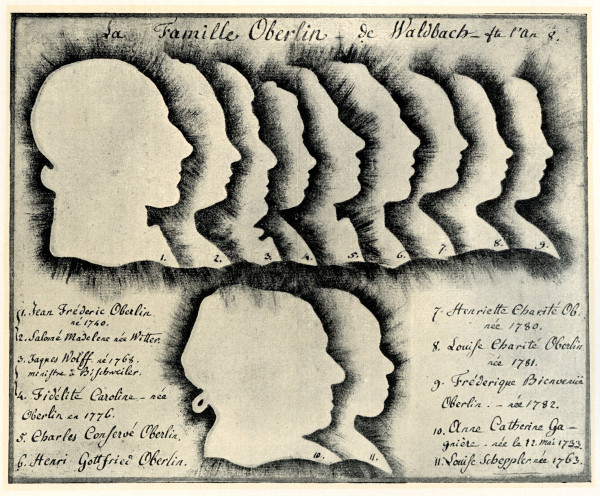 La Famille Oberlin de Waldbach - fte l'an 8.
1. 2. 3. 4. 5. 6. 7. 8. 9.
1. Jean Fréderic Oberlin
né 1740.
2. Salomé Madelene née Witter.
3. Jaques Wolff né 1768.
ministre à Bischweiler.
4. Fidélité Caroline - née
Oberlin en 1776.
5. Charles Conservé Oberlin.
6. Henri Gottfried Oberlin.
10. 11.
7. Henriette Charité Ob.
née 1780.
8. Louise Charité Oberlin
née 1781.
9. Fréderique Bienvenüe
Oberlin. - née 1782.
10. Anne Catherine Ga-
gnière - née le 12. Mai 1733.
11. Louise Scheppler née 1763.